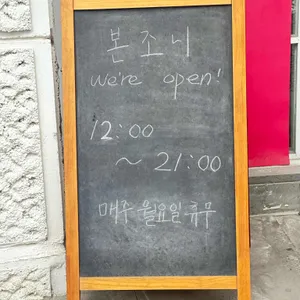 본조니
we're open!
12:00
~ 21:00
매주 월요일 휴무